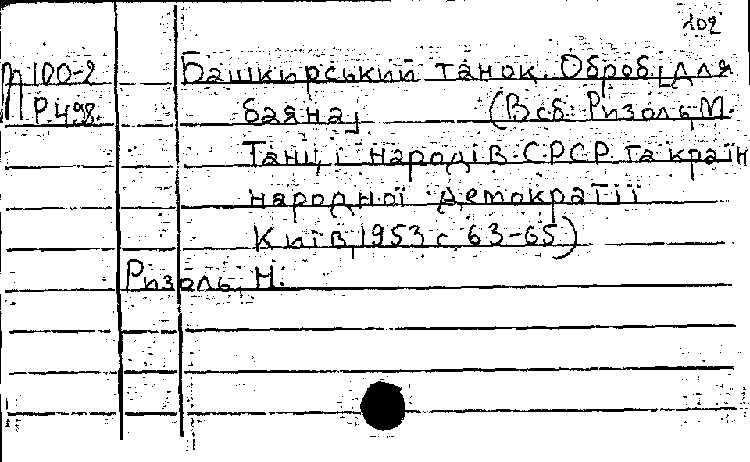 102
П100-2 Башкирський танок. Оброб. для
Р.498. баяна, (В сб: Ризоль, М.
Танці народів СРСР та країн
народної демократії
Київ, 1953 с. 63-65)
Ризоль, Н.